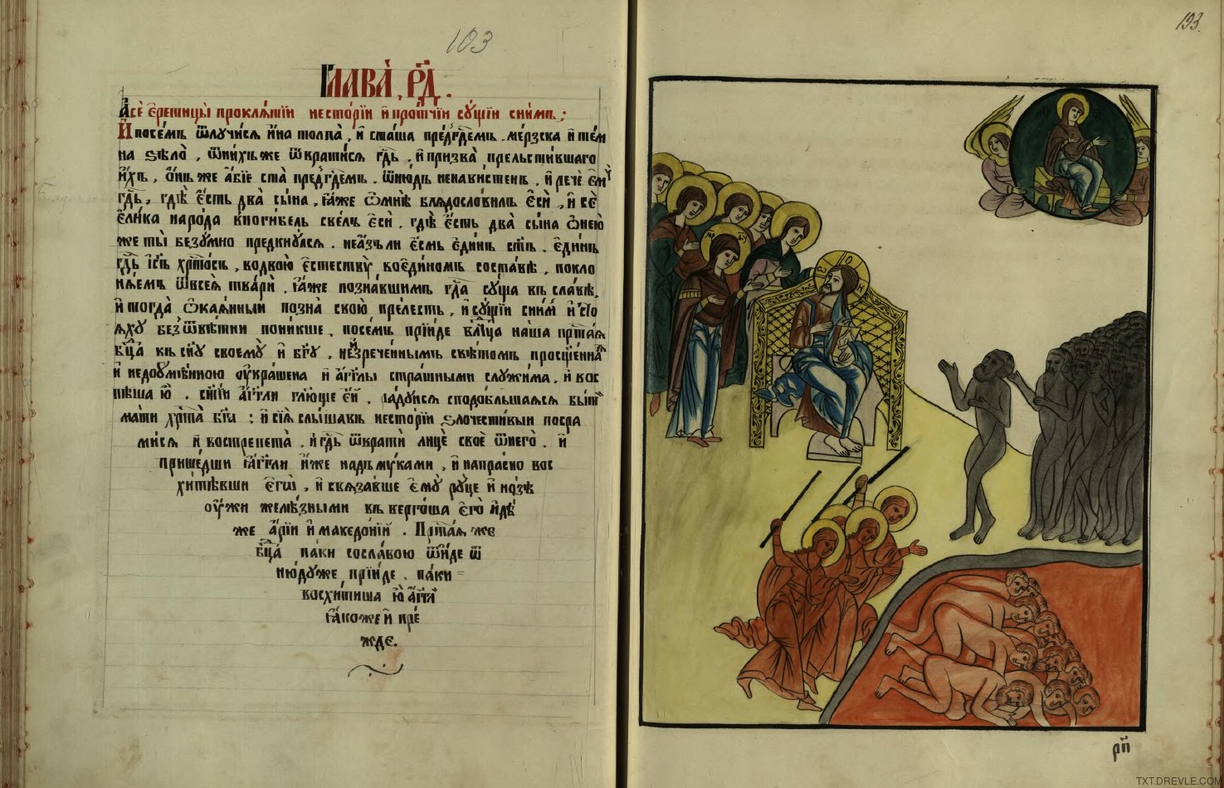 103
Глава̀, р҃д.
А сѐ є҆ретицы̀ проклѧ́тїи несто́рїи и҆ про́тчїи су́щїи сни́мъ;
И посе́мъ ѿлучи́сѧ и҆́на толпа̀, и҆ ста́ша предгдⷭ҇емъ. ме́рзска и҆ те́м
на ѕѣло̀, ѿни́хъже ѿврати́сѧ гдⷭ҇ь, и҆ призва̀ прельсти́вшаго
и҆́хъ, о҆́нъ же а҆́бїе ста̀ предгдⷭ҇емъ. и҆ речѐ є҆мꙋ̀
гдⷭ҇ь, гдѣ̀ є҆́сть два̀ сы́на, ꙗ҆́же ѡ҆мнѣ̀ блѧдосло́вилъ є҆сѝ, и҆ се
є҆ли́ка наро́да впоги́бель све́лъ є҆сѝ. гдѣ̀ є҆́сть два̀ сы́на ѡ҆не́ю
же ты̀ безу́мно предкну́всѧ. неа́зъ ли є҆́смь є҆ди́нъ сн҃ъ. є҆ди́нъ
гдⷭ҇ь і҆с҃ъ хрⷭ҇то́съ, водвою̀ є҆стествꙋ̀ воє҆ди́номъ соста́вѣ, покло
нѧ́емъ ѿвсеѧ̀ тва́ри, ꙗ҆́же позна́вшимъ гдⷭ҇а су́ща въ сла́вѣ,
и҆ тогда̀ ѡ҆каѧ́нныи позна̀ свою̀ пре́лесть, и҆ су́щїи сни́м и҆ сто
ѧ́ху без̾ѿвѣ́тни пони́кше. посе́мъ прїи́де влⷣчца на́ша прⷭ҇та́ѧ
бц҃а къ сн҃у своему̀ и҆ бг҃у, неизрече́ннымъ свѣ́томъ просвѣще́нна
и҆ недоумѣ́нною ѹ҆кра́шена и҆ а҆́гг҃лы стра́шными служи́ма, и҆ вос
пѣ́ша ю҆̀. ст҃і́и а҆́гг҃ли гл҃юще є҆́й. ра́дуисѧ сподо́бльшаѧсѧ бы́ти
ма́ти хрⷭ҇та̀ бг҃а: и҆ сїѧ̀ слы́шавъ несто́рїи ѕлочести́выи посра
ми́сѧ и҆ вострепета̀. и҆ гдⷭ҇ь ѿвратѝ лицѐ своѐ ѿнего̀. и҆
прише́дши а҆́гг҃ли и҆́же надъ му́ками, и҆ напра́сно вос
хи́тѣвши є҆го̀, и҆ свѧза́вше є҆мꙋ̀ ру́це и҆ но́зѣ
ѹ҆́жи желѣ́зными въверго́ша є҆го̀ и҆дѣ́
же а҆́рїи и҆ македо́нїи. Прⷭ҇та́ѧ же
бц҃а па́ки сосла́вою ѿи́де ѿ
ню́дуже прїи́де. па́ки
восхи́тиша ю҆̀ а҆́гг҃ли
ꙗ҆́коже и҆ пре́
жде.
193.
р҃п
TXT.DREVLE.COM